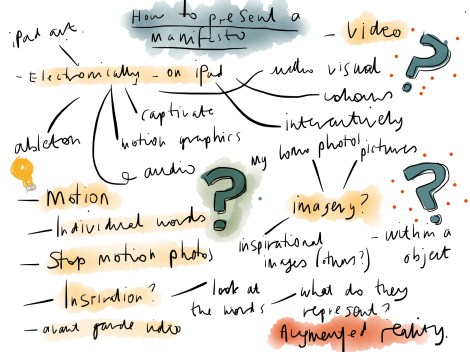 How to present a
manifesto
iPad art
- Video
- Electronically - on iPad
audio visual
colours
captivate
interactively
ableton
motion graphics
audio
my own photos
pictures
- Motion
imagery?
- Individual words
- within a
object
inspirational
images (others?)
- Stop motion photos
- Inspiration?
- look at
the words
- what do they
represent?
- avant garde video
Augmented reality.